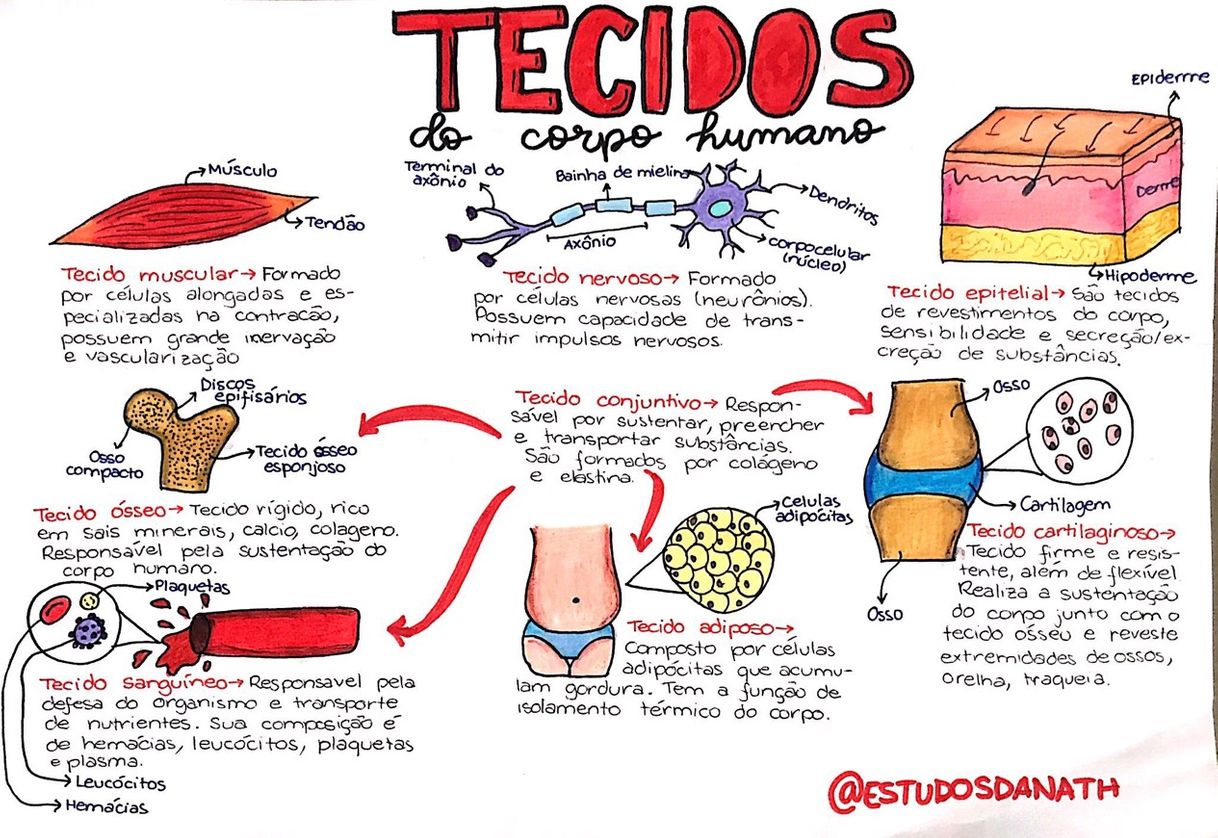 TECIDOS
do corpo humano
Músculo
Tendão
Tecido muscular→ Formado
por células alongadas e es-
pecializadas na contracão,
possuem grande inervação
e vascularização
Terminal do
axônio
Bainha de mielina
Dendritos
Axônio
corpocelular
(núcleo)
Tecido nervoso→ Formado
por células nervosas (neurônios).
Possuem capacidade de trans-
mitir impulsos nervosos.
Epiderme
Derme
Hipoderme
Tecido epitelial→ São tecidos
de revestimentos do corpo,
sensibilidade e secreção/ex-
creção de substâncias.
Discos
epifisários
Osso
compacto
Tecido ósseo
esponjoso
Tecido ósseo→ Tecido rígido, rico
em sais minerais, calcio, colageno.
Responsável pela sustentação do
corpo humano.
Tecido conjuntivo→ Respon-
sável por sustentar, preencher
e transportar substâncias.
São formados por colágeno
e elastina.
Osso
Cartilagem
Osso
Tecido cartilaginoso→
Tecido firme e resis-
tente, além de flexível
Realiza a sustentação
do corpo junto com o
tecido ósseu e reveste
extremidades de ossos,
orelha, traqueia.
Plaquetas
Tecido sanguíneo→ Responsavel pela
defesa do organismo e transporte
de nutrientes. Sua composição é
de hemácias, leucócitos, plaquetas
e plasma.
Leucócitos
Hemácias
Celulas
adipócitas
Tecido adiposo→
Composto por células
adipócitas que acumu-
lam gordura. Tem a função de
isolamento térmico do corpo.
@ESTUDOSDANATH